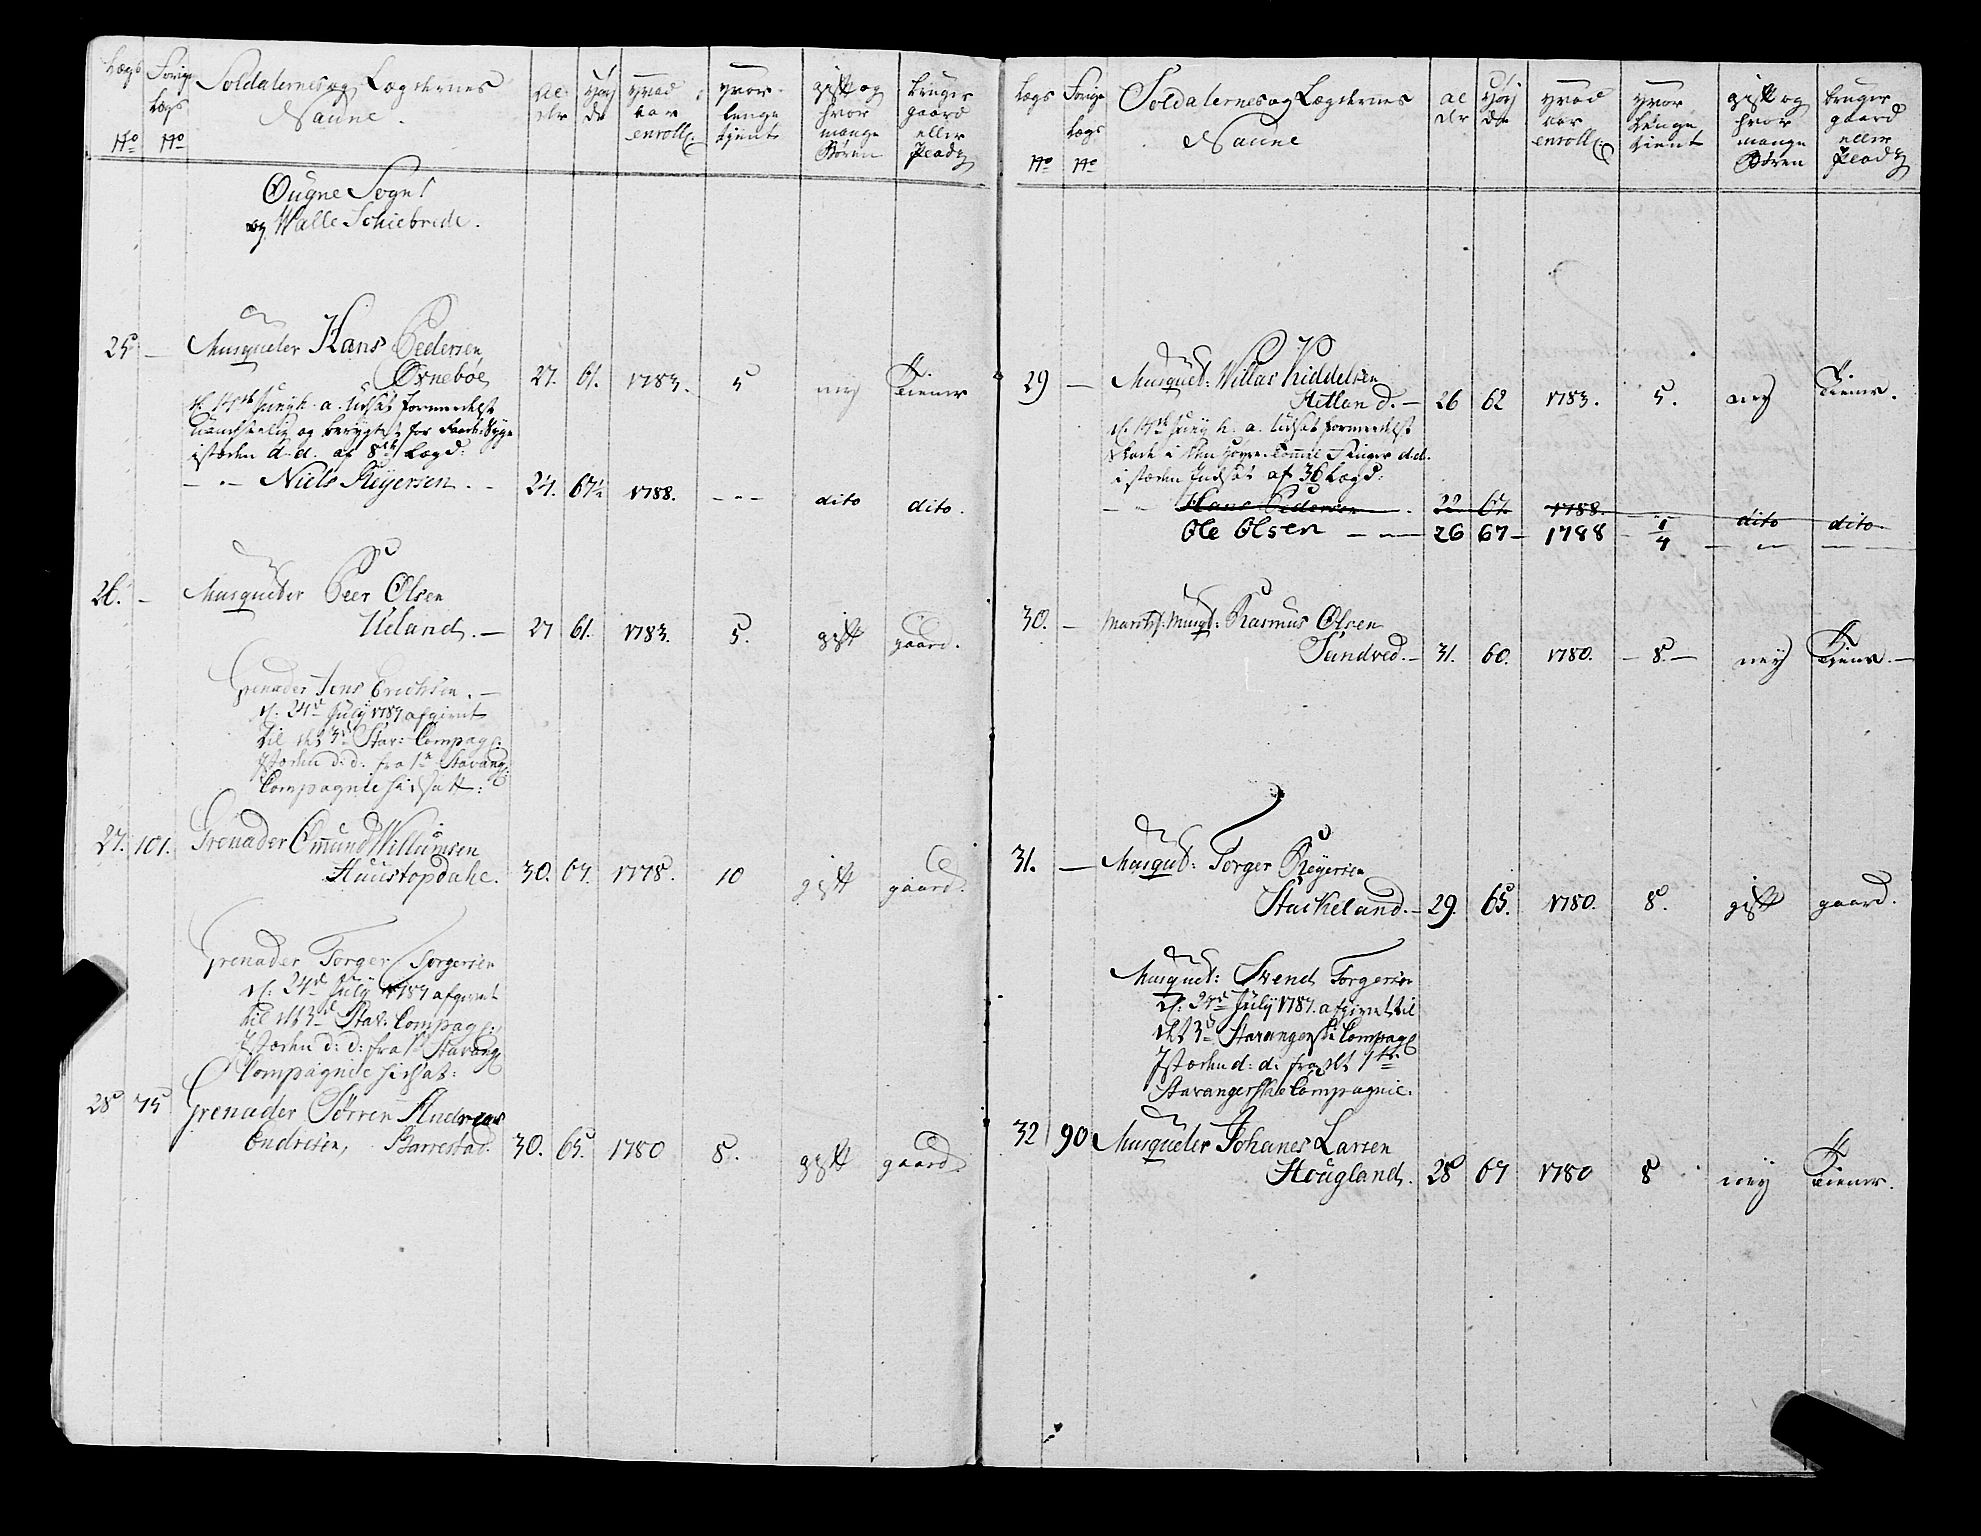 Lægs
No
Forige
Lægs
No
Soldaternes og Lægdernes
Naune.
Al-
der
Høy
de
Hvad
aar
enroll:
Hvor
lenge
tjent
gift og
hvor
mange
Børen
bruger
gaard
eller
Pladz
Ougne Sogn
og Walle Schibrede.
25 — Musqueter Hans Pedersen
Ørneboe 27. 61. 1783. 5 ney tiener
istæden d. d. af 8de Lægd:
— Niels Reyersen. 24. 67½ 1788. --- dito dito.
26. — Musqueter Peer Olsen
Ueland. — 27 61. 1783. 5. gift gaard.
Grenader Jens Erichsen. —
d: 24de July 1787 afgivet
til det 3de Stav: Compag:
Istæden d: d: fra 1te Stavang:
Compagnie hidsatt:
27. 101. Grenader Omund Willumsen
Haustopdahl. 30. 67. 1778. 10 gift gaard.
Grenader Torger Torgersen
d: 24de July 1787 afgivet
til det 3de Stav: Compag:
Istæden d: d: fra 1te Stavang:
Compagnie hidsat:
28 75 Grenader Sørren Andreas
Endresen, Barrestad. 30. 65. 1780 8. gift gaard.
Lægs
No
Forige
Lægs
No
Soldaternes og Lægdernes
Naune
al
der
Høy
de
Hvad
aar
enroll:
Hvor
lenge
tient
gift og
hvor
mange
Børen
bruger
gaard
eller
Pladz
29 — Musquet: Villas Kiddelsen
Hetland. — 26 62 1783. 5. ney tiener.
d. 17de Juny h. a. udsat formedelst
i stæden Indsat af 36 Lægd:
Hans Pedersen. 22 67. 1788. dito dito
Ole Olsen — — 26 67 — 1788 — 1/4 — — —
30. — Musqt: Rasmus Olsen
Sandved. — 31. 60. 1780. — 8. — ney tiener. —
31. — Musquet: Torger Reyersen
Stackeland. — 29. 65. 1780. 8. gift gaard.
Musquet: Svend Torgersen
d: 24de July 1787. afgivet til
det 3de Stavangerske Compag:
Istæden d: d: fra det 1te
Stavangerske Compagnie.
32 90 Musqueter Johanes Larsen
Hougland. 28 67 1780 8 ney tiener.